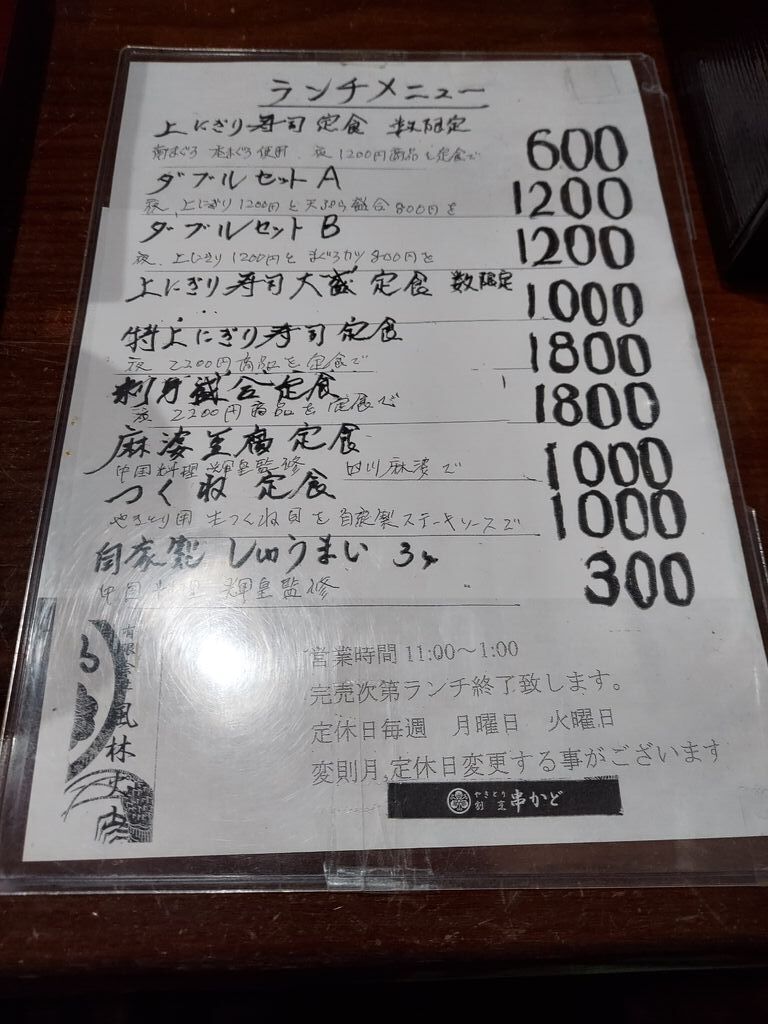 ランチメニュー
上にぎり寿司定食 数限定 600
南まぐろ 本まぐろ使用 夜1200円商品を定食で
ダブルセットA 1200
夜、上にぎり1200円と天ぷら盛合800円を
ダブルセットB 1200
夜、上にぎり1200円とまぐろカツ800円を
上にぎり寿司大盛定食 数限定 1000
特上にぎり寿司定食 1800
夜2200円商品を定食で
刺身盛合定食 1800
夜2200円商品を定食で
麻婆豆腐定食 1000
中国料理輝皇監修 四川麻婆で
つくね定食 1000
やきとり用生つくね貝を自家製ステーキソースで
自家製しゅうまい 3ヶ 300
中国料理輝皇監修
営業時間11:00～1:00
完売次第ランチ終了致します。
定休日毎週 月曜日 火曜日
変則月,定休日変更する事がございます
有限会社風林
やきとり
割烹
串かど